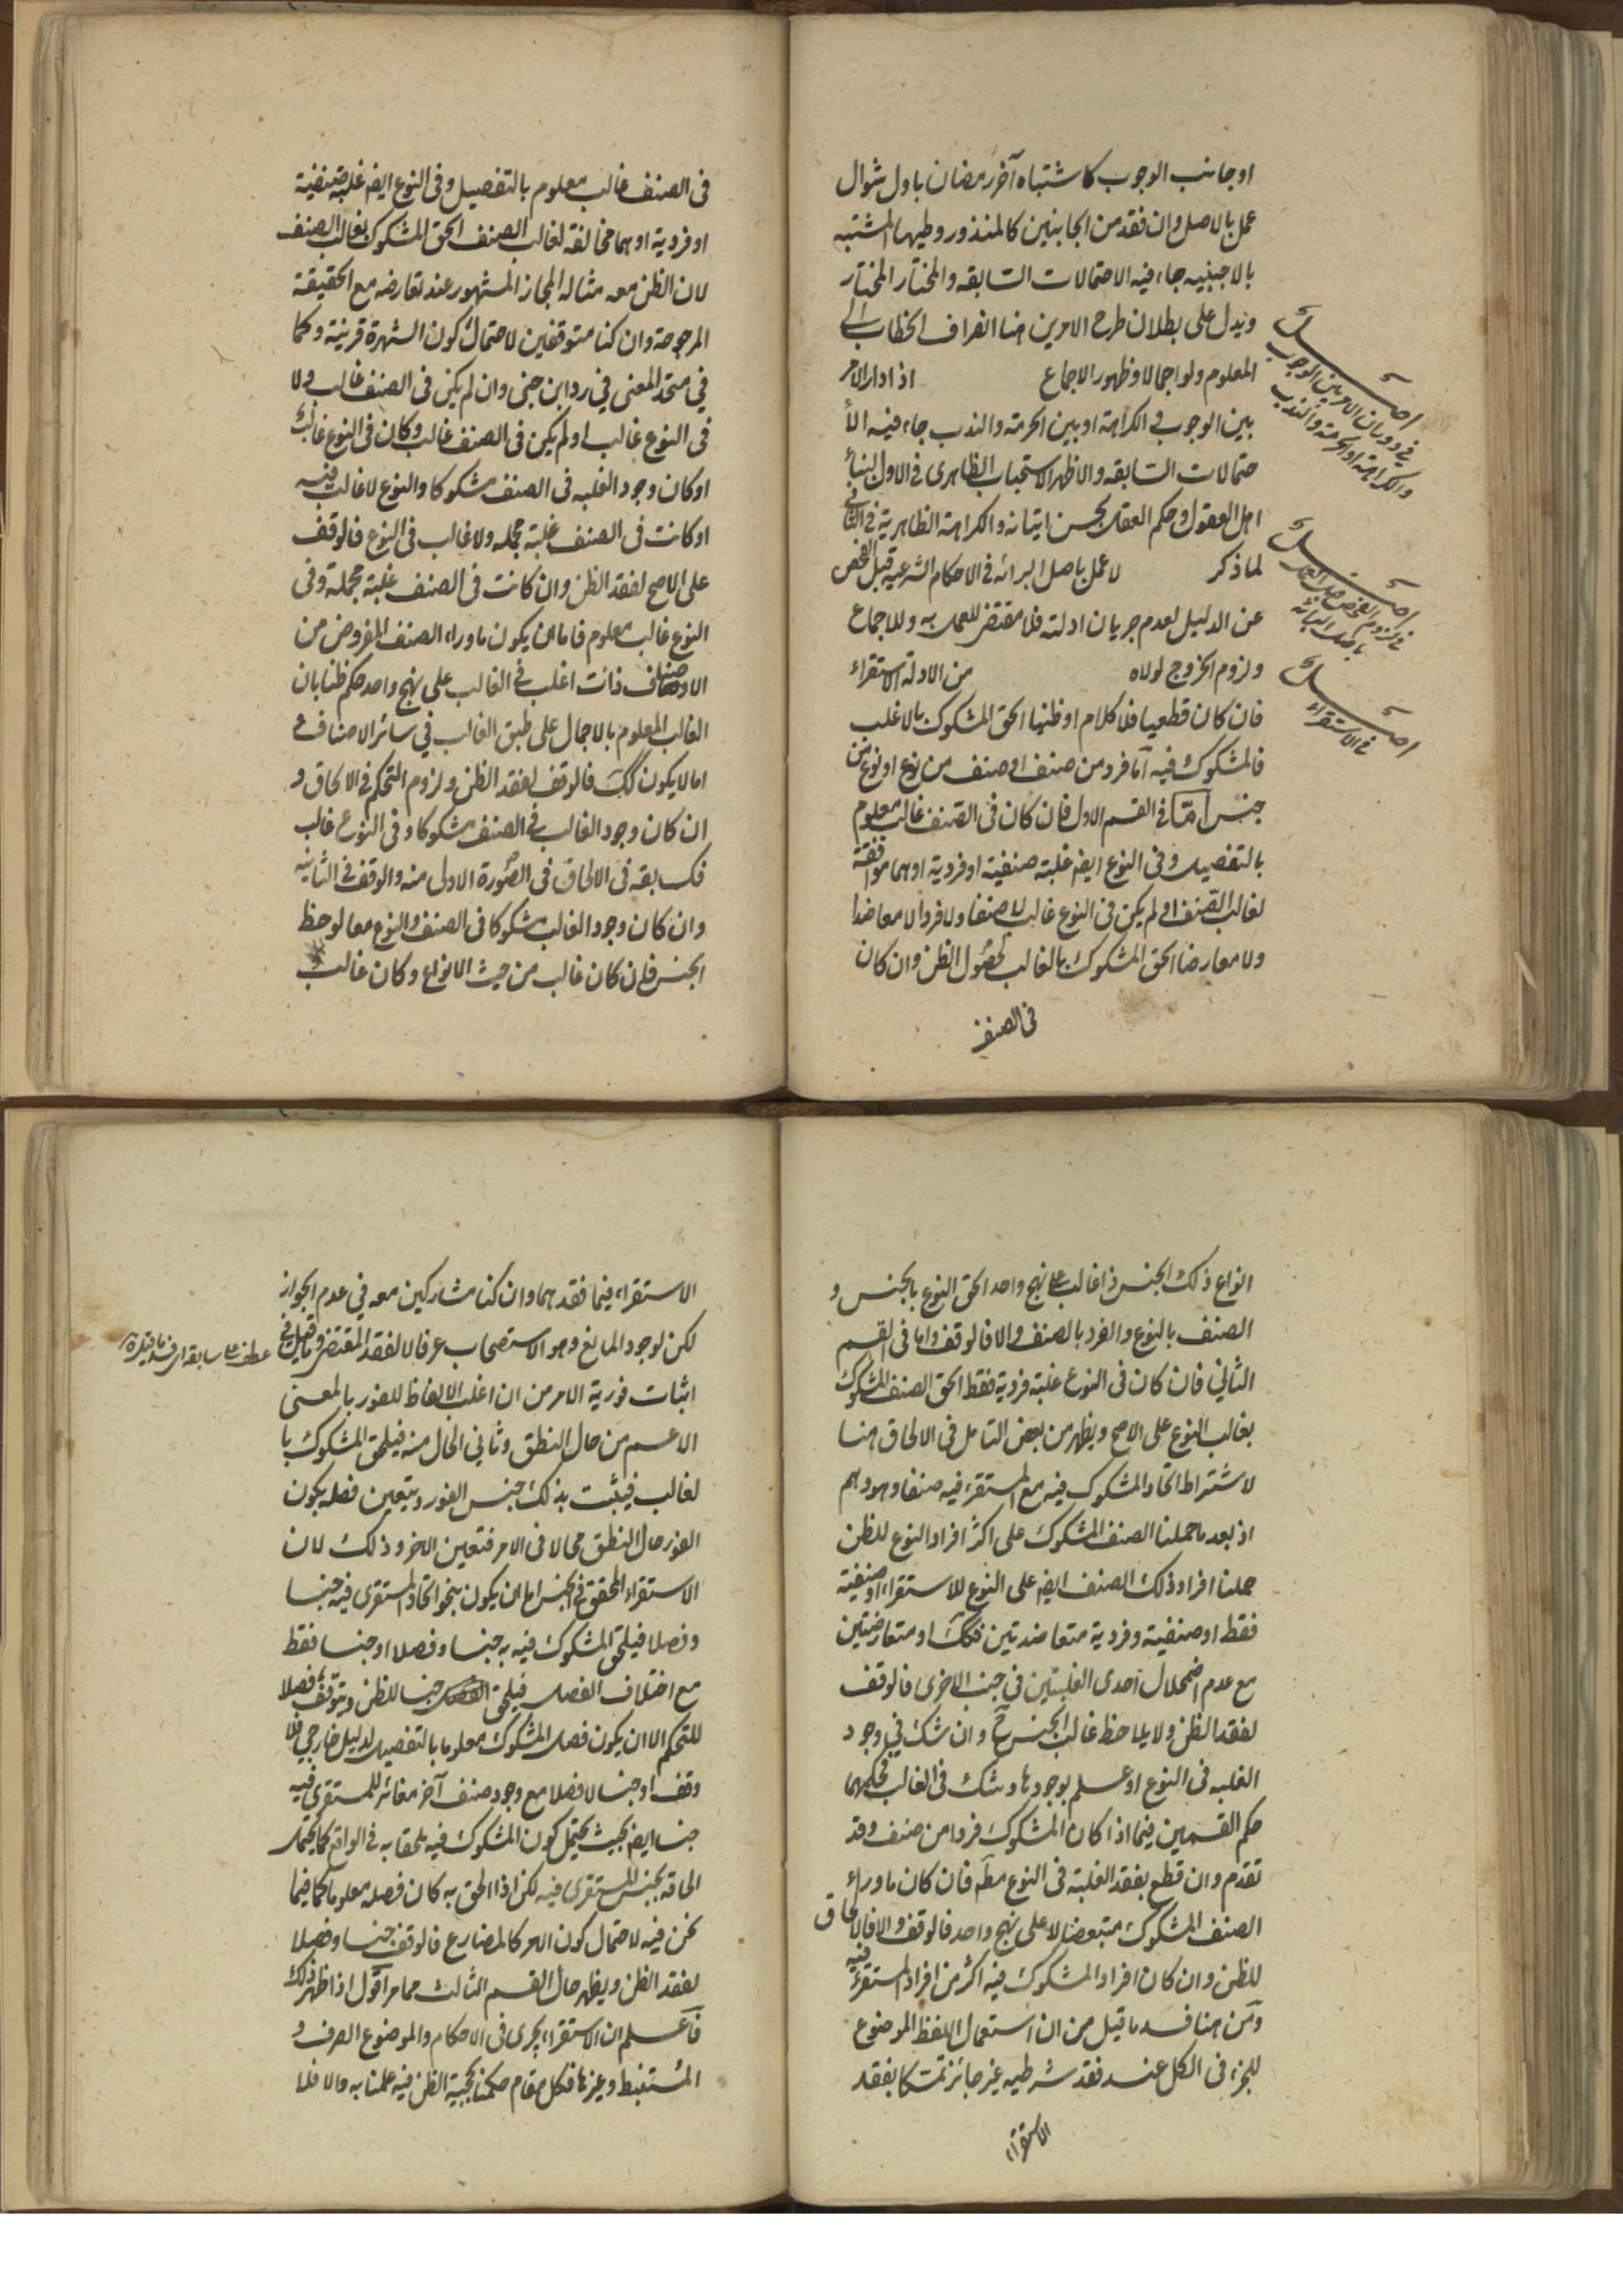 او جانب الوجوب كاشتباه آخر رمضان باول شوال
عمل بالاصل وان فقد من الجانبين كالمنذور وطيها المشتبه
بالاجنبيه جاء فيه الاحتمالات السابقه والمختار المختار
ويدل على بطلان طرح الامرين هنا انصراف الخطاب الى
المعلوم ولو اجمالا وظهور الاجماع اذا دار الامر
بين الوجوب و الكراهة او بين الحرمة والندب جاء فيه الأ
حتمالات السابقه والاظهر الاستحباب الظاهرى فى الاول لبنأ
اهل العقول وحكم العقل بحسن اتيانه والكراهة الظاهرية فى الثانى
لما ذكر لا عمل باصل البرائه فى الاحكام الشرعيه قبل الفحص
عن الدليل لعدم جريان ادلته فلا مقتضى للعمل به وللاجماع
ولزوم الخروج لولاه من الادلة الاستقراء
فان كان قطعيا فلا كلام او ظنيا الحق المشكوك بالاغلب
فالمشكوك فيه اما فرد من صنف او صنف من نوع او نوع من
جنس امّا فى القسم الاول فان كان فى الصنف غالب معلوم
بالتفصيل وفى النوع ايضه غلبة صنفية او فردية او هما موافقة
لغالب الصنف او لم يكن فى النوع غالب لا صنفا ولا فردا لا معاضدا
ولا معارضا الحق المشكوك بالغالب لحصول الظن وان كان
فى الصنف
اصل فى دوران الامر بين الوجوب
والكراهة او الحرمة والندب
اصل فى لزوم الفحص قبل العمل
باصل البرائة
اصل فى الاستقراء
فى الصنف غالب معلوم بالتفصيل وفى النوع ايضه غلبة صنفية
او فردية او هما مخالفة لغالب الصنف الحق المشكوك بغالب الصنف
لان الظن معه مثاله المجاز المشهور عند تعارضه مع الحقيقة
المرجوحة وان كنا متوقفين لاحتمال كون الشهرة قرينة وكما
في متحد المعنى في رد ابن جنى وان لم يكن فى الصنف غالب ولا
فى النوع غالب او لم يكن فى الصنف غالب وكان فى النوع غالب
او كان وجود الغلبه فى الصنف مشكوكا والنوع لا غالب فيه
او كانت فى الصنف غلبة مجمله ولا غالب فى النوع فالوقف
على الاصح لفقد الظن وان كانت فى الصنف غلبة مجملة وفى
النوع غالب معلوم فاما ان يكون ماوراء الصنف المفروض من
الاصناف ذات اغلب فى الغالب على نهج واحد حكم ظنا بان
الغالب المعلوم بالاجمال على طبق الغالب في سائر الاصناف و
اما لا يكون كك فالوقف لفقد الظن ولزوم التحكم فى الالحاق و
ان كان وجود الغالب فى الصنف مشكوكا وفى النوع غالب
فكسابقه فى الالحاق فى الصورة الاولى منه والوقف فى الثانيه
وان كان وجود الغالب مشكوكا فى الصنف والنوع معا لوحظ
الجنس فان كان غالب من حيث الانواع وكان غالب
انواع ذلك الجنس ذا غالب على نهج واحد الحق النوع بالجنس و
الصنف بالنوع والفرد بالصنف والا فالوقف واما فى القسم
الثاني فان كان فى النوع غلبة فردية فقط الحق الصنف المشكوك
بغالب النوع على الاصح ويظهر من بعض التامل فى الالحاق هنا
لاشتراط اتحاد المشكوك فيه مع المستقرء فيه صنفا وهو وهم
اذ بعد ما حملنا الصنف المشكوك على اكثر افراد النوع للظن
حملنا افراد ذلك الصنف ايضه على النوع للاستقراء او صنفية
فقط او صنفية وفردية متعاضدتين فكك او متعارضتين
مع عدم اضمحلال احدى الغلبتين في جنب الاخرى فالوقف
لفقد الظن ولا يلاحظ غالب الجنس ح وان شك في وجود
الغلبه فى النوع او علم بوجودها وشك فى الغالب فحكمهما
حكم القسمين فيما اذا كان المشكوك فردا من صنف وقد
تقدم وان قطع بفقد الغلبة فى النوع مطه فان كان ماوراء
الصنف المشكوك متبعضا لا على نهج واحد فالوقف والا فالالحاق
للظن وان كان افراد المشكوك فيه اكثر من افراد المستقرء فيه
ومن هنا فسد ما قيل من ان استعمال اللفظ الموضوع
للجزء فى الكل عند فقد شرطيه غير جائز تمسكا بفقد
الاستقراء
الاستقراء فيما فقد هما وان كنا مشاركين معه في عدم الجواز
لكن لوجود المانع وهو الاستصحاب عرفا لا لفقد المقتضى وما قيل فى
عطف على سابقه اى فسد ما قيل
اثبات فورية الامر من ان اغلب الالفاظ للفور بالمعنى
الاعم من حال النطق وثانى الحال منه فيلحق المشكوك با
لغالب فيثبت بذلك جنس الفور ويتعين فصله بكون
الفور حال النطق محالا فى الامر فتعين الاخر وذلك لان
الاستقراء المحقق فى الجنس اما ان يكون بنحو اتحاد المستقرى فيه جنسا
وفصلا فيلحق المشكوك فيه به جنسا وفصلا او جنسا فقط
مع اختلاف الفصل فيلحق جنسا للظن ويتوقف فصلا
للتحكم الا ان يكون فصل المشكوك معلوما بالتفصيل لدليل خارجي فلا
وقف او جنسا لا فصلا مع وجود صنف آخر مغائر للمستقرى فيه
جنسا ايضه بحيث يحتمل كون المشكوك فيه ملحقا به فى الواقع كما يحتمل
الحاقه بجنس المستقرى فيه لكن اذا الحق به كان فصله معلوما كما فيما
نحن فيه لاحتمال كون الامر كالمضارع فالوقف جنسا وفصلا
لفقد الظن ويظهر حال القسم الثالث مما مر اوّل اذا ظهر ذلك
فاعلم ان الاستقراء يجرى فى الاحكام والموضوع الصرف و
المستنبط وغيرها فكل مقام حكمنا بحجية الظن فيه عملنا به والا فلا